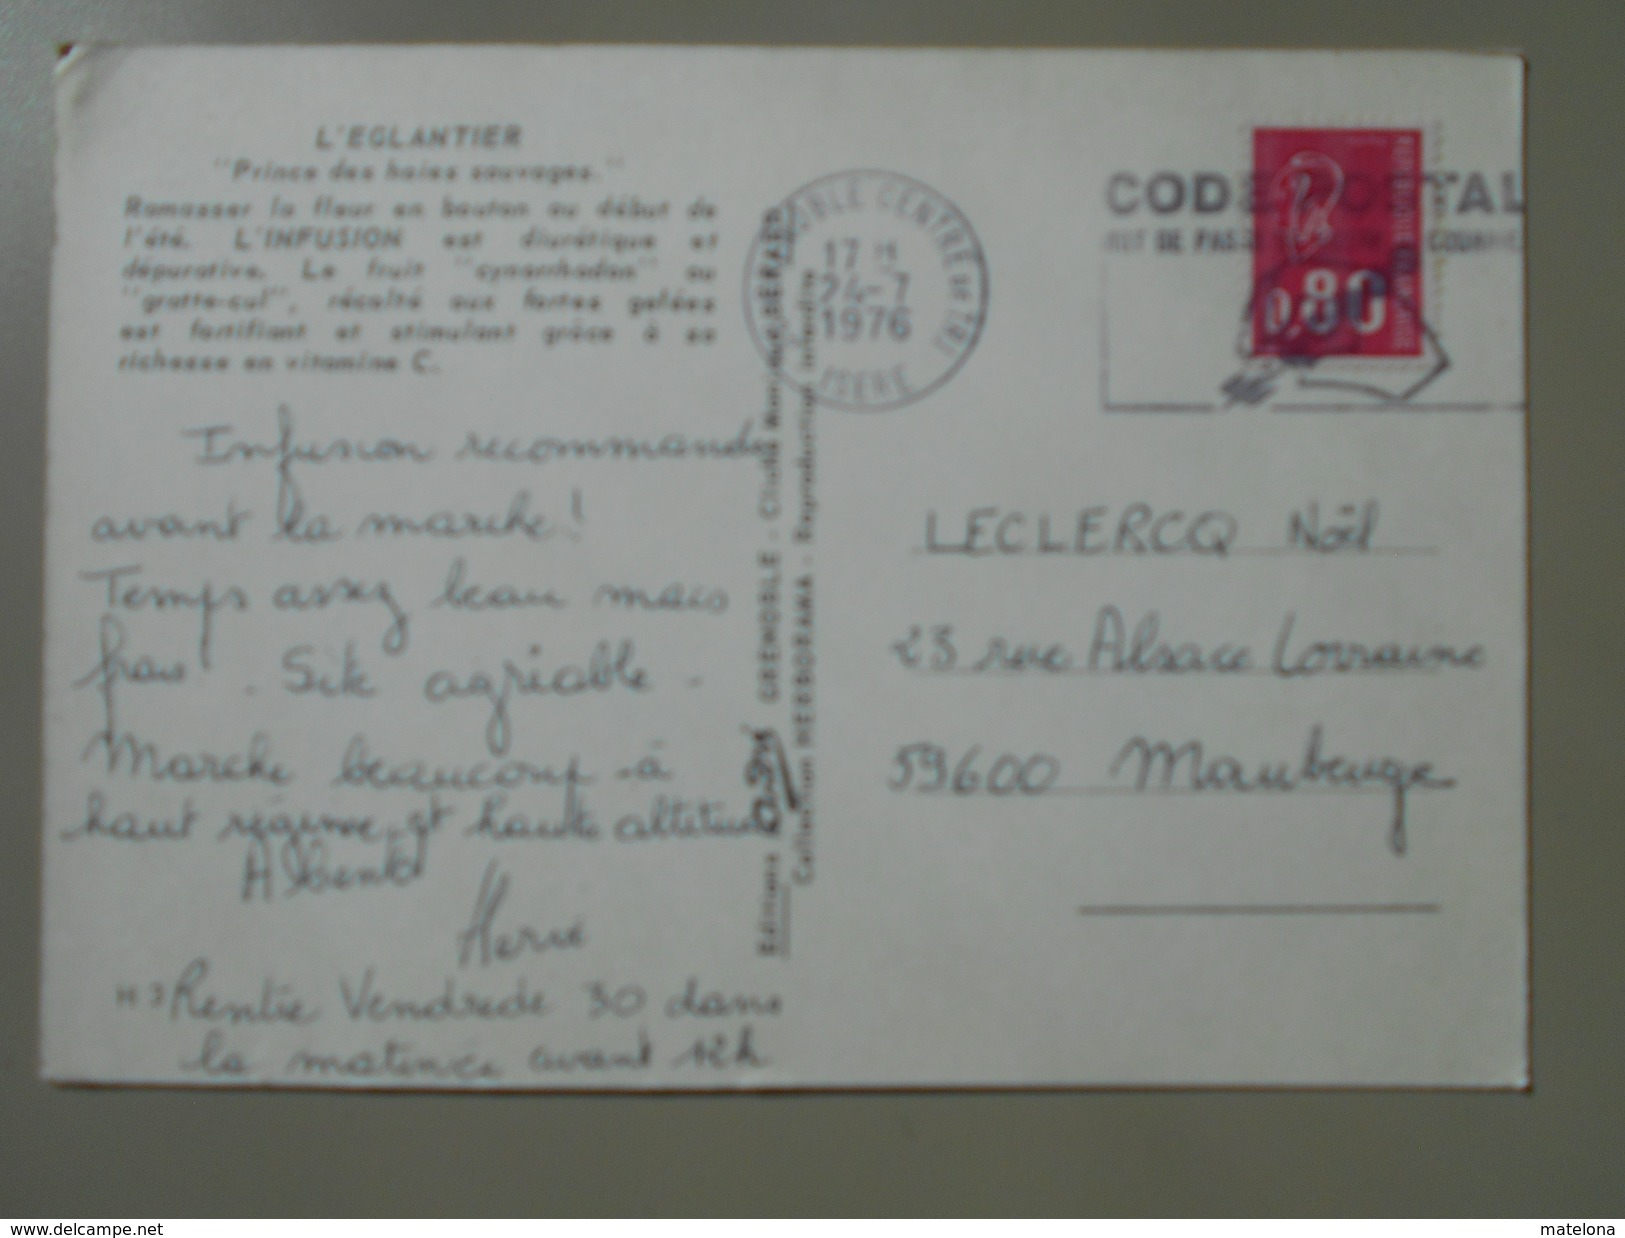 L'EGLANTIER
"Prince des haies sauvages."
Ramasser la fleur en bouton au début de
l'été. L'INFUSION est diurétique et
dépurative. Le fruit "cynorrhodon" ou
"gratte-cul", récolté aux fortes gelées
est fortifiant et stimulant grâce à sa
richesse en vitamine C.
Infusion recommandée
avant la marche!
Temps assez beau mais
frais. Site agréable.
Marche beaucoup à
haut régime et haute altitude
A Bientôt
Hervé
H 3
Rentre Vendredi 30 dans
la matinée avant 12h
GRENOBLE - Cliché
Collection HERBORAMA - Reproduction interdite
Editions
GRENOBLE CENTRE DE TRI
17 H
24-7
1976
ISERE
CODE POSTAL
MOT DE PASSE
0,80
LECLERCQ Noël
23 rue Alsace Lorraine
59600 Maubeuge
www.delcampe.net
matelona